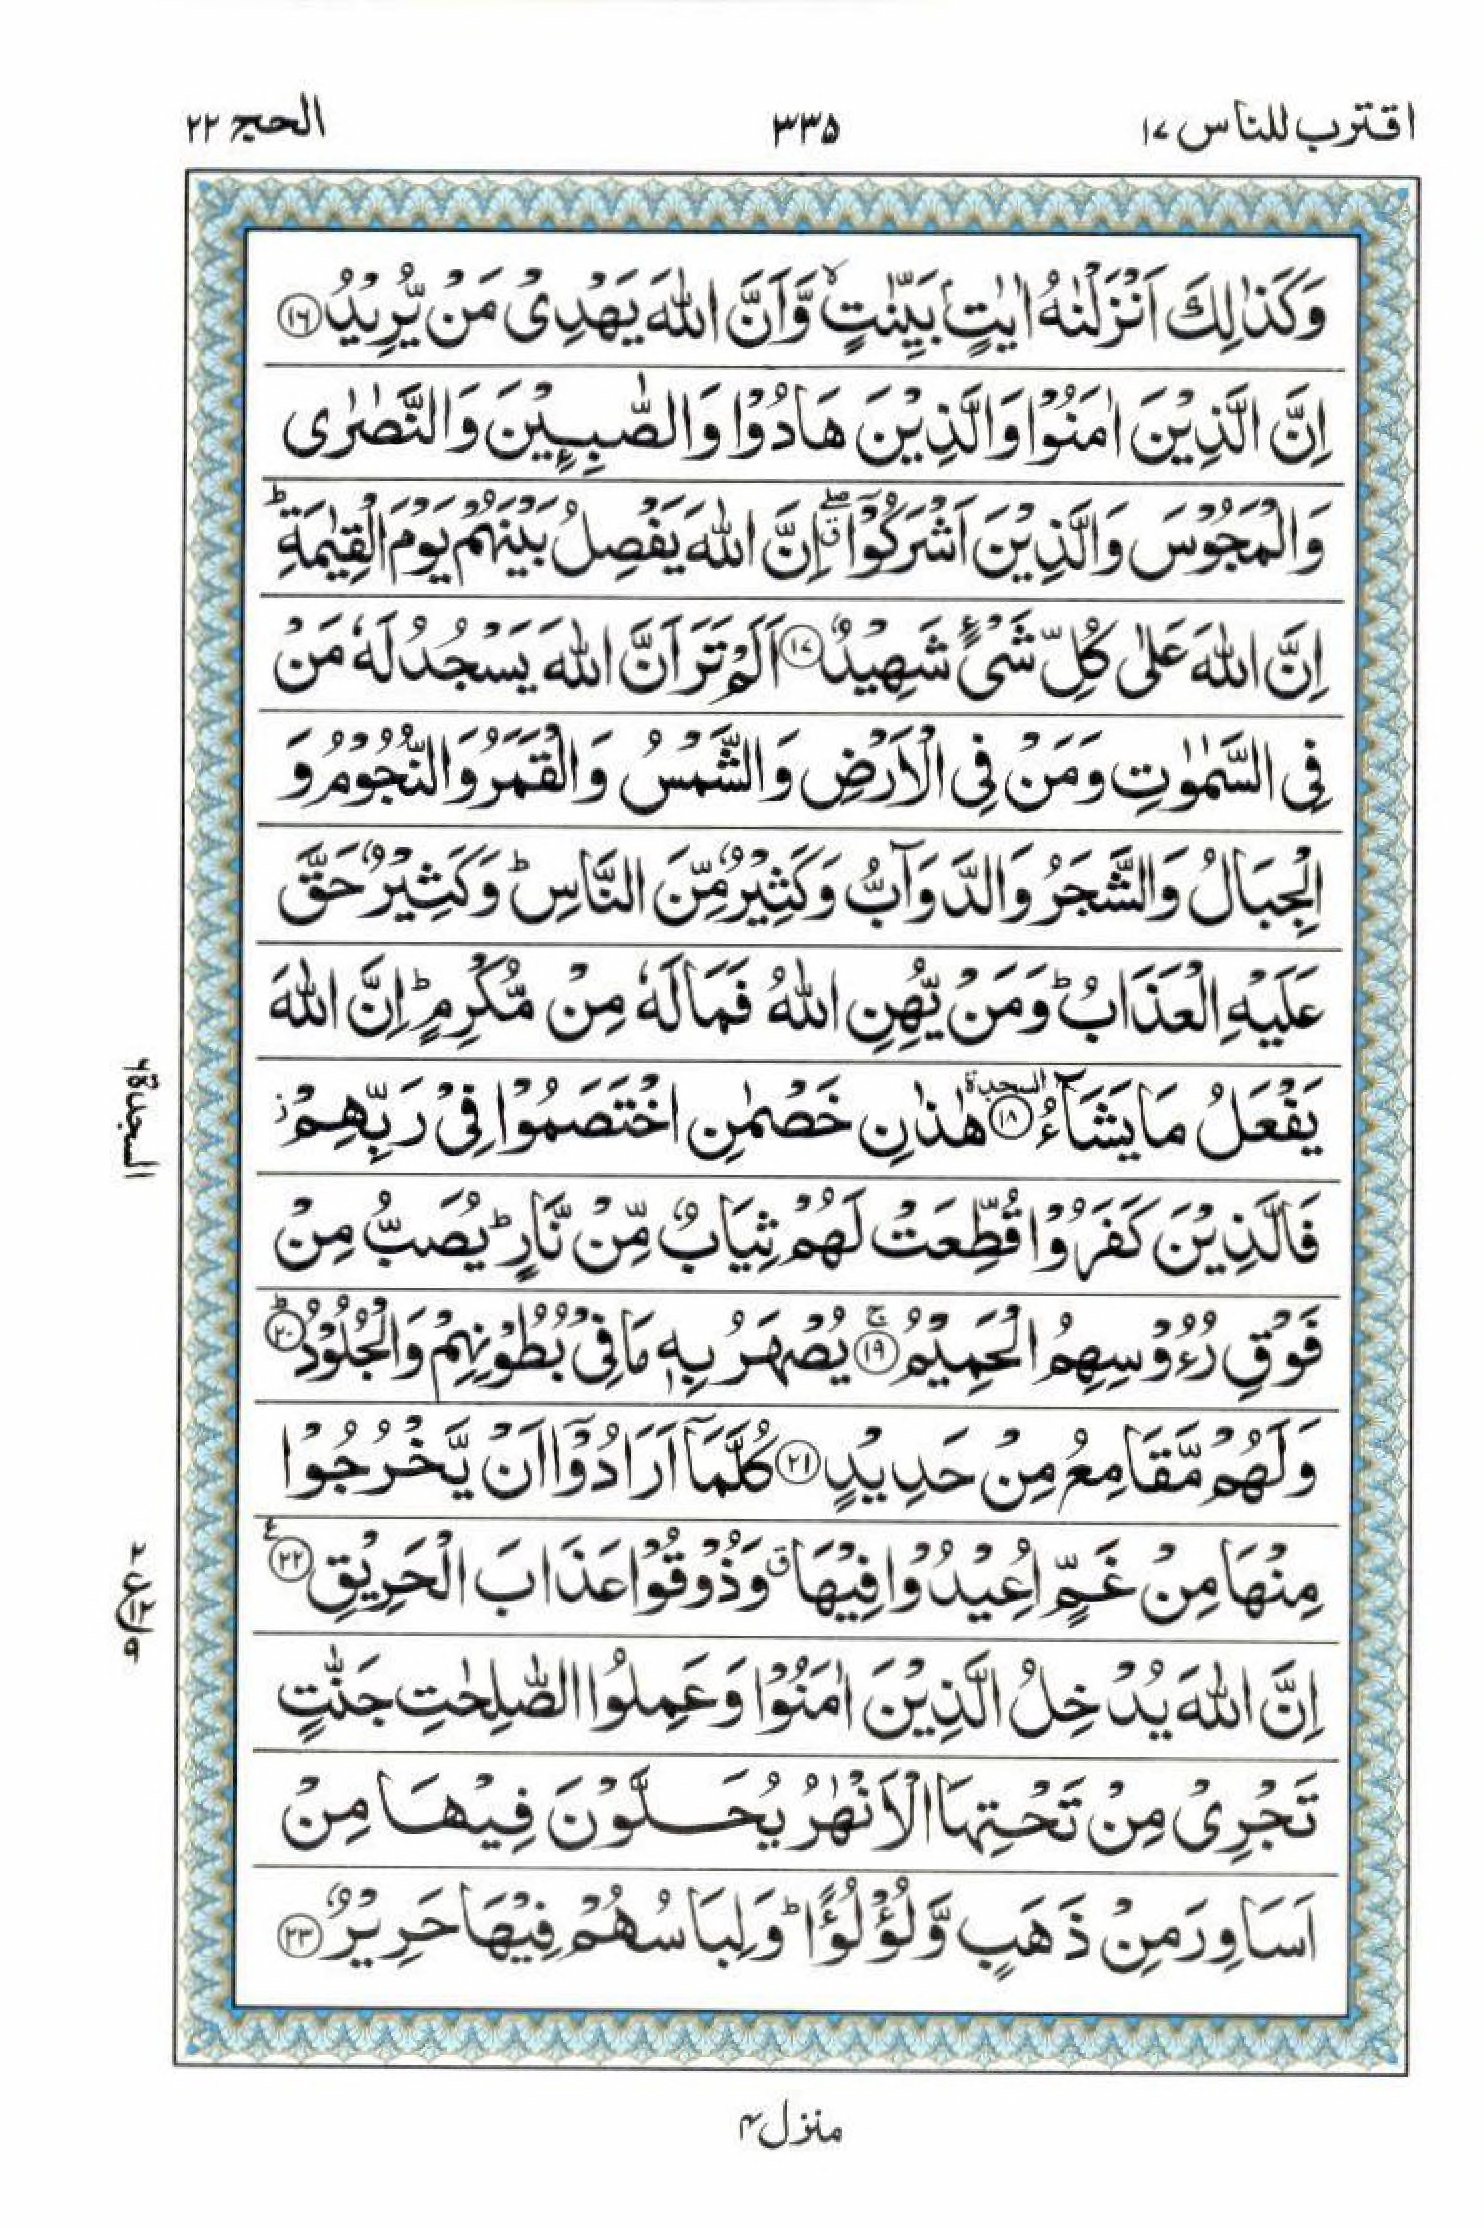 اقترب للناس ١٧
٣٣٥
الحج ٢٢
وَكَذٰلِكَ اَنْزَلْنٰهُ اٰيٰتٍۭ بَيِّنٰتٍ ۙ وَّاَنَّ اللّٰهَ يَهْدِىْ مَنْ يُّرِيْدُ ﴿١٦﴾
اِنَّ الَّذِيْنَ اٰمَنُوْا وَالَّذِيْنَ هَادُوْا وَالصّٰبِـِٕيْنَ وَالنَّصٰرٰى
وَالْمَجُوْسَ وَالَّذِيْنَ اَشْرَكُوْۤا ۖ ق اِنَّ اللّٰهَ يَفْصِلُ بَيْنَهُمْ يَوْمَ الْقِيٰمَةِ ؕ
اِنَّ اللّٰهَ عَلٰى كُلِّ شَىْءٍ شَهِيْدٌ ﴿١٧﴾ اَلَمْ تَرَ اَنَّ اللّٰهَ يَسْجُدُ لَهٗ مَنْ
فِى السَّمٰوٰتِ وَمَنْ فِى الْاَرْضِ وَالشَّمْسُ وَالْقَمَرُ وَالنُّجُوْمُ وَ
الْجِبَالُ وَالشَّجَرُ وَالدَّوَآبُّ وَكَثِيْرٌ مِّنَ النَّاسِ ؕ وَكَثِيْرٌ حَقَّ
عَلَيْهِ الْعَذَابُ ؕ وَمَنْ يُّهِنِ اللّٰهُ فَمَا لَهٗ مِنْ مُّكْرِمٍ ؕ اِنَّ اللّٰهَ
يَفْعَلُ مَا يَشَآءُ ﴿١٨﴾ السجدة هٰذٰنِ خَصْمٰنِ اخْتَصَمُوْا فِىْ رَبِّهِمْ ز
السجدة ٦
فَالَّذِيْنَ كَفَرُوْا قُطِّعَتْ لَهُمْ ثِيَابٌ مِّنْ نَّارٍ ؕ يُصَبُّ مِنْ
فَوْقِ رُءُوْسِهِمُ الْحَمِيْمُ ۚ ﴿١٩﴾ يُصْهَرُ بِهٖ مَا فِىْ بُطُوْنِهِمْ وَالْجُلُوْدُ ؕ ﴿٢٠﴾
وَلَهُمْ مَّقَامِعُ مِنْ حَدِيْدٍ ﴿٢١﴾ كُلَّمَاۤ اَرَادُوْۤا اَنْ يَّخْرُجُوْا
مِنْهَا مِنْ غَمٍّ اُعِيْدُوْا فِيْهَا ق وَذُوْقُوْا عَذَابَ الْحَرِيْقِ ﴿٢٢﴾ ع
٢ ع ٩
اِنَّ اللّٰهَ يُدْخِلُ الَّذِيْنَ اٰمَنُوْا وَعَمِلُوا الصّٰلِحٰتِ جَنّٰتٍ
تَجْرِىْ مِنْ تَحْتِهَا الْاَنْهٰرُ يُحَلَّوْنَ فِيْهَا مِنْ
اَسَاوِرَ مِنْ ذَهَبٍ وَّلُؤْلُؤًا ؕ وَلِبَاسُهُمْ فِيْهَا حَرِيْرٌ ﴿٢٣﴾
منزل ٤